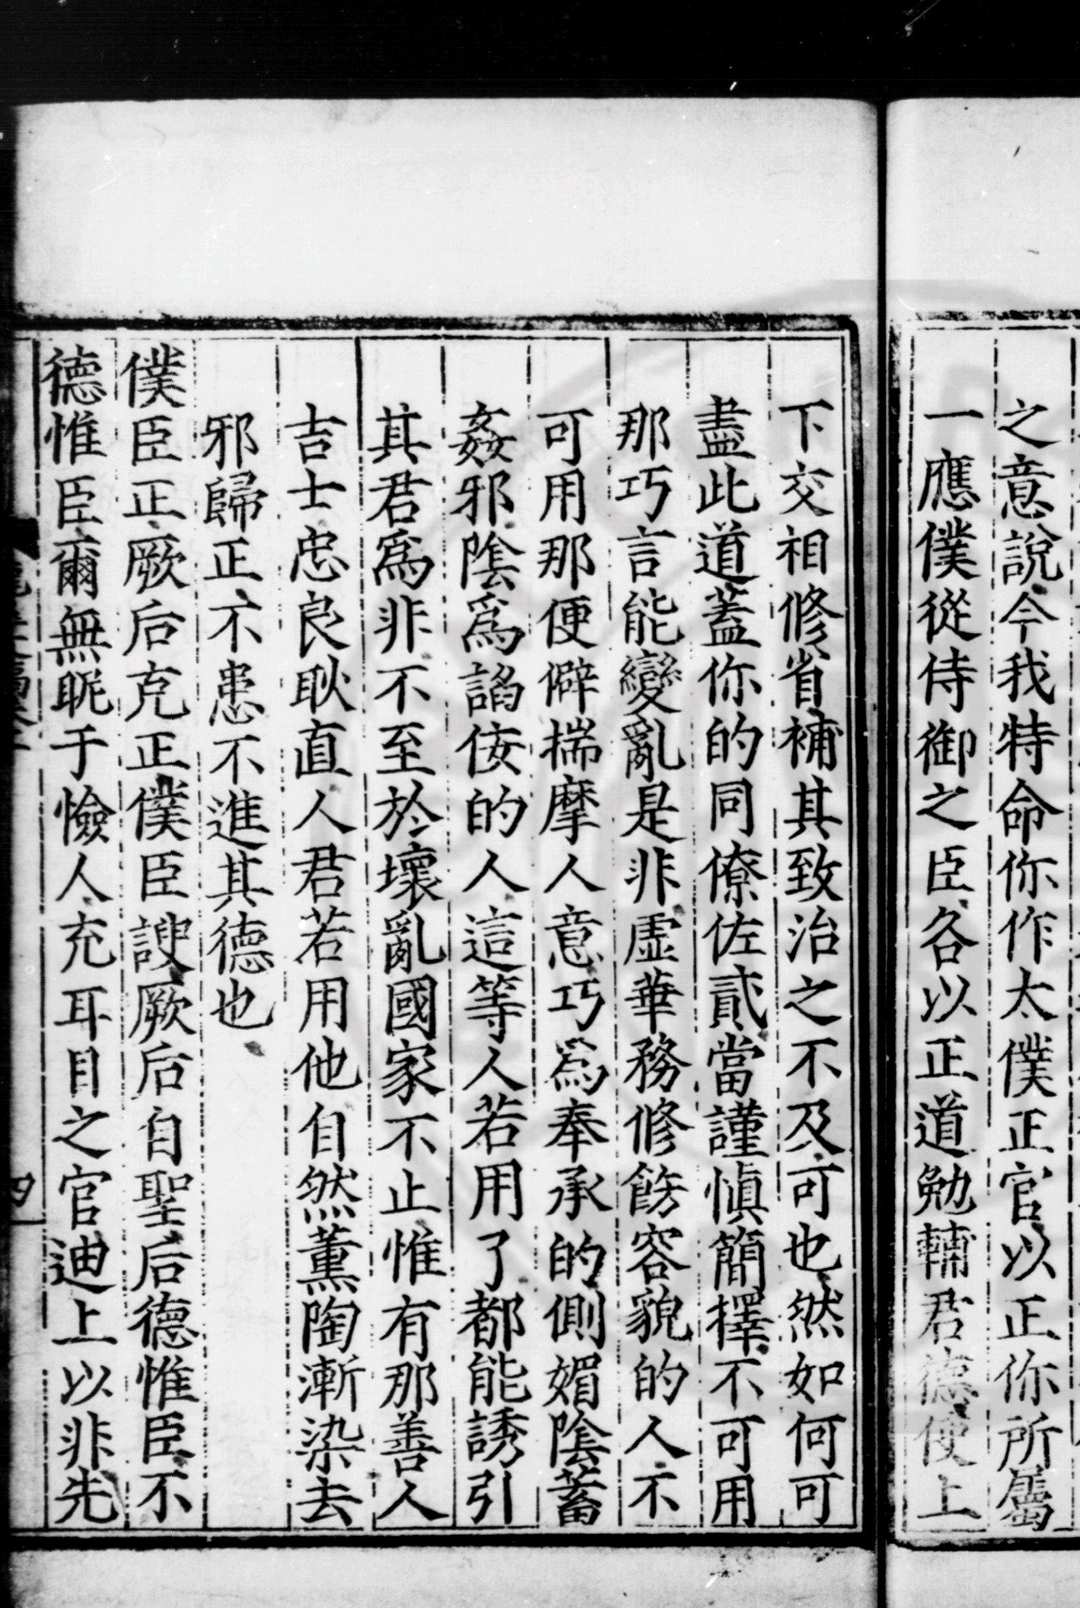 之意說今我特命你作太僕正官以正你所屬
一應僕從侍御之臣各以正道勉輔君德使上
下交相修省補其致治之不及可也然如何可
盡此道蓋你的同僚佐貳當謹慎簡擇不可用
那巧言能變亂是非虛華務修飭容貌的人不
可用那便僻揣摩人意巧爲奉承的側媚陰蓄
姦邪陰爲謟佞的人這等人若用了都能誘引
其君爲非不至於壞亂國家不止惟有那善人
吉士忠良耿直人君若用他自然薰陶漸染去
邪歸正不患不進其德也
僕臣正厥后克正僕臣諛厥后自聖后德惟臣不
德惟臣爾無昵于憸人充耳目之官迪上以非先
四